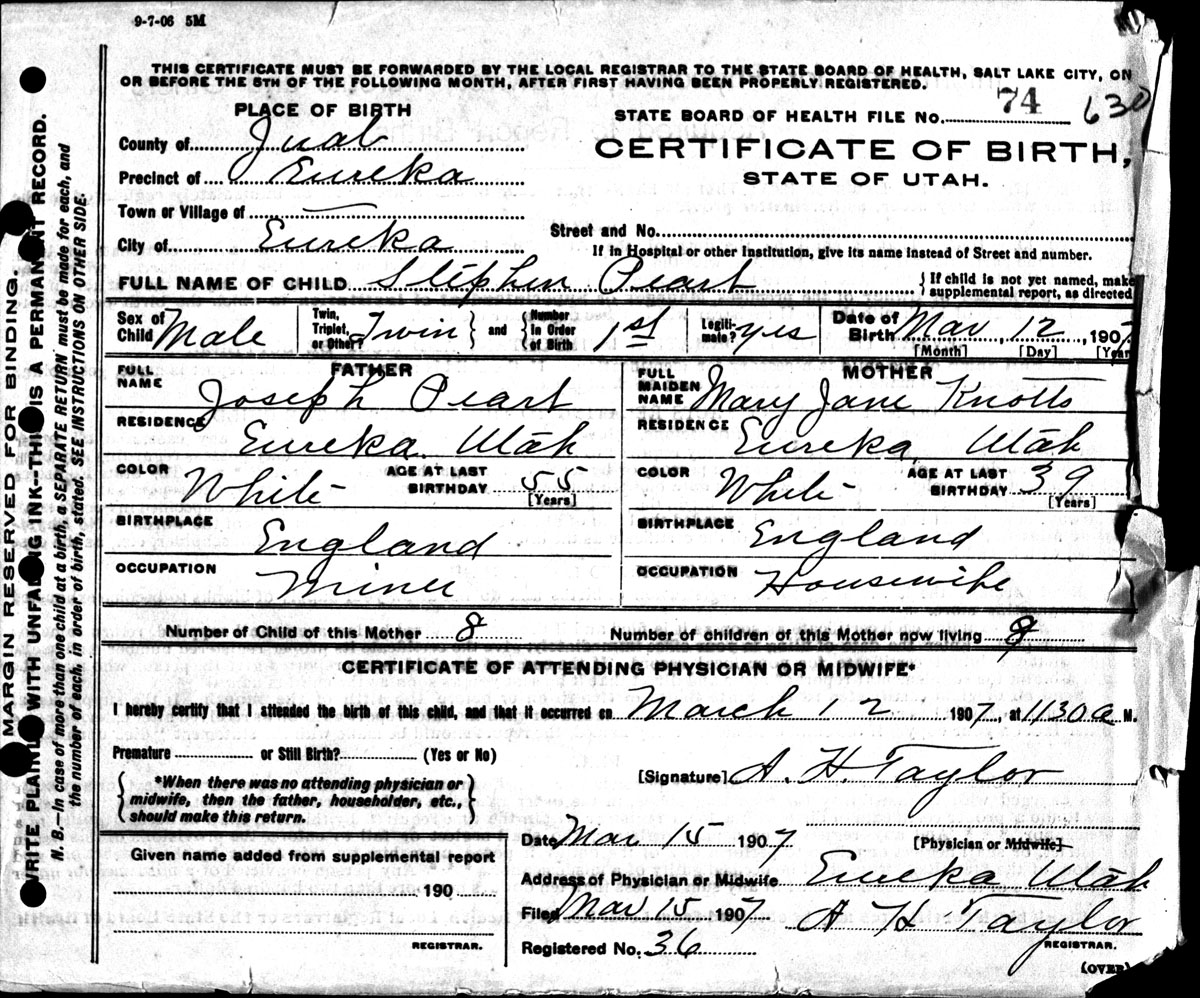 9-7-06 5M
THIS CERTIFICATE MUST BE FORWARDED BY THE LOCAL REGISTRAR TO THE STATE BOARD OF HEALTH, SALT LAKE CITY, ON
OR BEFORE THE 5TH OF THE FOLLOWING MONTH, AFTER FIRST HAVING BEEN PROPERLY REGISTERED.
PLACE OF BIRTH
STATE BOARD OF HEALTH FILE NO. 74 630
County of Juab
CERTIFICATE OF BIRTH,
STATE OF UTAH.
Precinct of Eureka
Town or Village of —
Street and No.
City of Eureka
If in Hospital or other Institution, give its name instead of Street and number.
FULL NAME OF CHILD Stephen Peart { If child is not yet named, make
supplemental report, as directed
Sex of Child Male
Twin, Triplet, or Other? Twin } and { Number in Order of Birth 1st
Legitimate? yes
Date of Birth Mar, 12, 1907
[Month] [Day] [Year
FATHER
FULL NAME Joseph Peart
RESIDENCE Eureka Utah
COLOR White AGE AT LAST BIRTHDAY 55 [Years]
BIRTHPLACE England
OCCUPATION Miner
MOTHER
FULL MAIDEN NAME Mary Jane Knotts
RESIDENCE Eureka, Utah
COLOR White AGE AT LAST BIRTHDAY 39 [Years]
BIRTHPLACE England
OCCUPATION Housewife
Number of Child of this Mother 8 Number of children of this Mother now living
CERTIFICATE OF ATTENDING PHYSICIAN OR MIDWIFE*
I hereby certify that I attended the birth of this child, and that it occurred on March 12 1907, at 1130 a M.
Premature or Still Birth? (Yes or No)
{ *When there was no attending physician or
midwife, then the father, householder, etc.,
should make this return. }
[Signature] A. H. Taylor
Date Mar 15 1907 [Physician or Midwife]
Address of Physician or Midwife Eureka Utah
Filed Mar 15 1907 A H Taylor
REGISTRAR.
Registered No. 36
(OVER)
Given name added from supplemental report
190
REGISTRAR.
MARGIN RESERVED FOR BINDING.
WRITE PLAINLY WITH UNFADING INK--THIS IS A PERMANENT RECORD.
N. B.—In case of more than one child at a birth, a SEPARATE RETURN must be made for each, and
the number of each, in order of birth, stated. SEE INSTRUCTIONS ON OTHER SIDE.